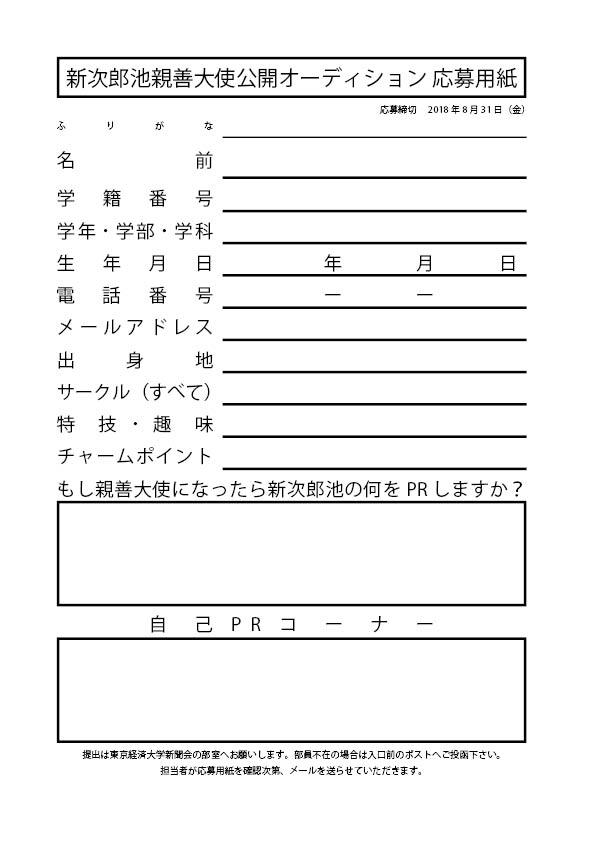 新次郎池親善大使公開オーディション 応募用紙
応募締切 2018年8月31日（金）
ふりがな
名前
学籍番号
学年・学部・学科
生年月日 年 月 日
電話番号 ー ー
メールアドレス
出身地
サークル（すべて）
特技・趣味
チャームポイント
もし親善大使になったら新次郎池の何を PR しますか？
自己PRコーナー
提出は東京経済大学新聞会の部室へお願いします。部員不在の場合は入口前のポストへご投函下さい。
担当者が応募用紙を確認次第、メールを送らせていただきます。